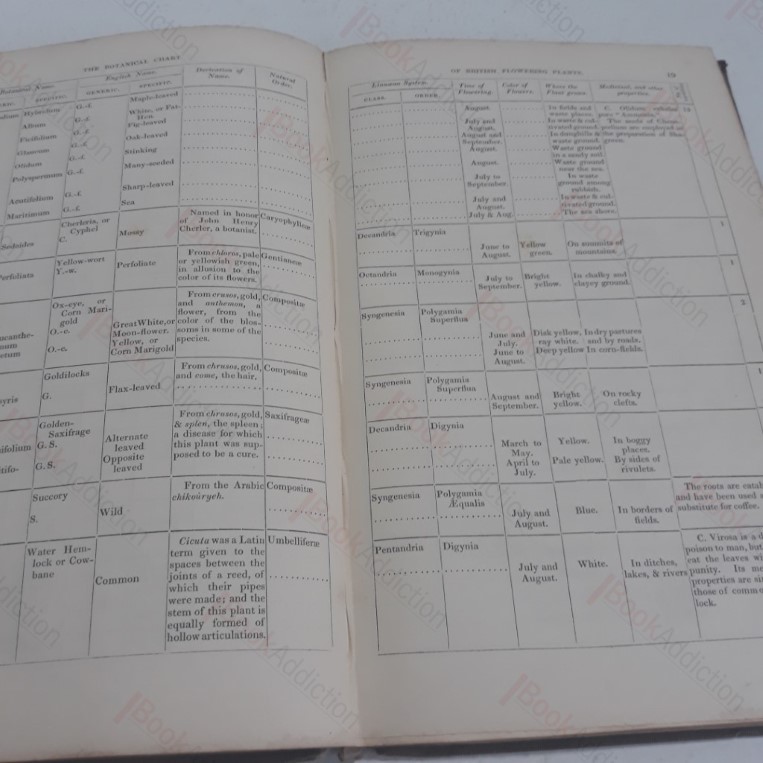 THE BOTANICAL CHART
English Name.
Derivation of
Name.
Natural
Order.
SPECIFIC.
GENERIC.
SPECIFIC.
Hybridum
G.-f.
Maple-leaved
Album
G.-f.
White, or Fat-
Hen.
Ficifolium
G.-f.
Fig-leaved
Glaucum
G.-f.
Oak-leaved
Olidum
G.-f.
Stinking
Polyspermum
G.-f.
Many-seeded
Acutifolium
G.-f.
Sharp-leaved
Maritimum
G.-f.
Sea
Sedoides
Cherleria, or
Cyphel
C.
Mossy
Named in honor
of John Henry
Cherler, a botanist.
Caryophylleæ
Perfoliata
Yellow-wort
Y.-w.
Perfoliate
From chloros, pale
or yellowish green,
in allusion to the
color of its flowers.
Gentianeæ
Ox-eye, or
Corn Mari-
gold
O.-e.
O.-e.
Great White, or
Moon-flower.
Yellow, or
Corn Marigold
From crusos, gold,
and anthemon, a
flower, from the
color of the blos-
soms in some of the
species.
Compositæ
Goldilocks
G.
Flax-leaved
From chrusos, gold,
and come, the hair.
Compositæ
Golden-
Saxifrage
G. S.
G. S.
Alternate
leaved
Opposite
leaved
From chrusos, gold,
& splen, the spleen;
a disease for which
this plant was sup-
posed to be a cure.
Saxifrageæ
Succory
S.
Wild
From the Arabic
chikoûryeh.
Compositæ
Water Hem-
lock or Cow-
bane
Common
Cicuta was a Latin
term given to the
spaces between the
joints of a reed, of
which their pipes
were made; and the
stem of this plant is
equally formed of
hollow articulations.
Umbelliferæ
OF BRITISH FLOWERING PLANTS.
19
Linnæan System.
CLASS.
ORDER.
Time of
Flowering
Color of
Flowers
Where the
Plant grows
Medicinal, and other
properties.
August.
In fields and
waste places.
July and
August.
In waste & cul-
tivated ground.
August and
September.
In dunghills &
waste ground
August.
Waste ground
in a sandy soil.
August.
Waste ground
near the sea.
July to
September.
In waste
ground among
rubbish.
July and
August.
In waste & cul-
tivated ground.
July & Aug.
The sea shore.
Decandria
Trigynia
June to
August.
Yellow
green.
On summits of
mountains.
1
Octandria
Monogynia
July to
September.
Bright
yellow.
In chalky and
clayey ground.
1
Syngenesia
Polygamia
Superflua
June and
July.
June to
August.
Disk yellow,
ray white.
Deep yellow
In dry pastures
and by roads.
In corn-fields.
2
Syngenesia
Polygamia
Superflua
August and
September.
Bright
yellow.
On rocky
clefts.
1
Decandria
Digynia
March to
May.
April to
July.
Yellow.
Pale yellow.
In boggy
places.
By sides of
rivulets.
Syngenesia
Polygamia
Æqualis
July and
August.
Blue.
In borders of
fields.
The roots are
and have been used
substitute for coffee.
Pentandria
Digynia
July and
August.
White.
In ditches,
lakes, & rivers
C. Virosa is a
poison to man, but
eat the leaves
punity. Its
properties are
those of
lock.